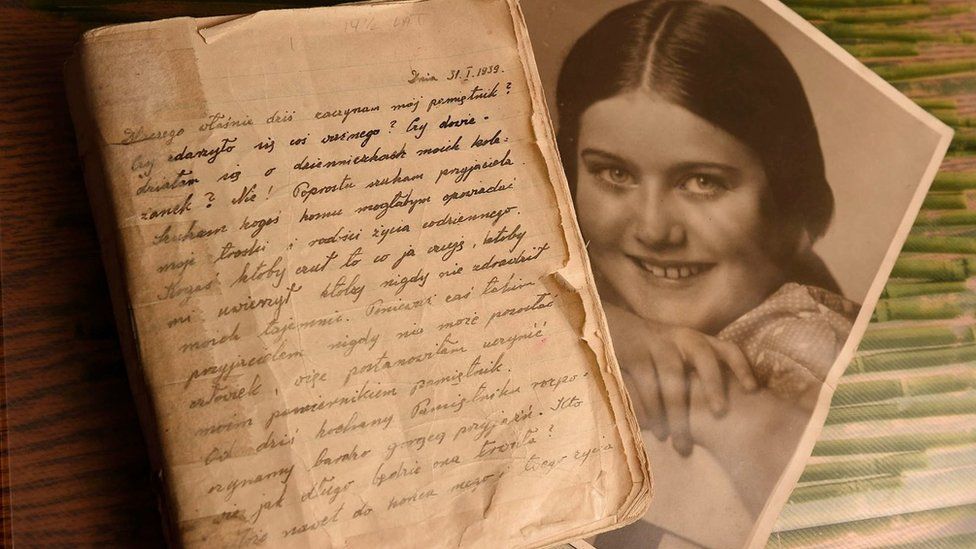 14½ LAT
Dnia 31.I.1939.
Dlaczego właśnie dziś zaczynam mój pamiętnik?
Czy zdarzyło się coś ważnego? Czy dowie-
działam się o dzienniczkach moich kole-
żanek? Nie! Poprostu szukam przyjaciela.
Szukam kogoś komu mogłabym opowiadać
moje troski i radości życia codziennego.
Kogoś ktoby czuł to co ja czuję, ktoby
mi uwierzył, ktoby nigdy nie zdradził
moich tajemnic. Ponieważ zaś takim
przyjacielem nigdy nie może pozostać
człowiek, więc postanowiłam uczynić
moim powiernikiem pamiętnik.
Od dziś kochany Pamiętniku rozpo-
czynamy bardzo gorącą przyjaźń. Kto
wie jak długo będzie ona trwała?
Może nawet do końca mego i twego życia